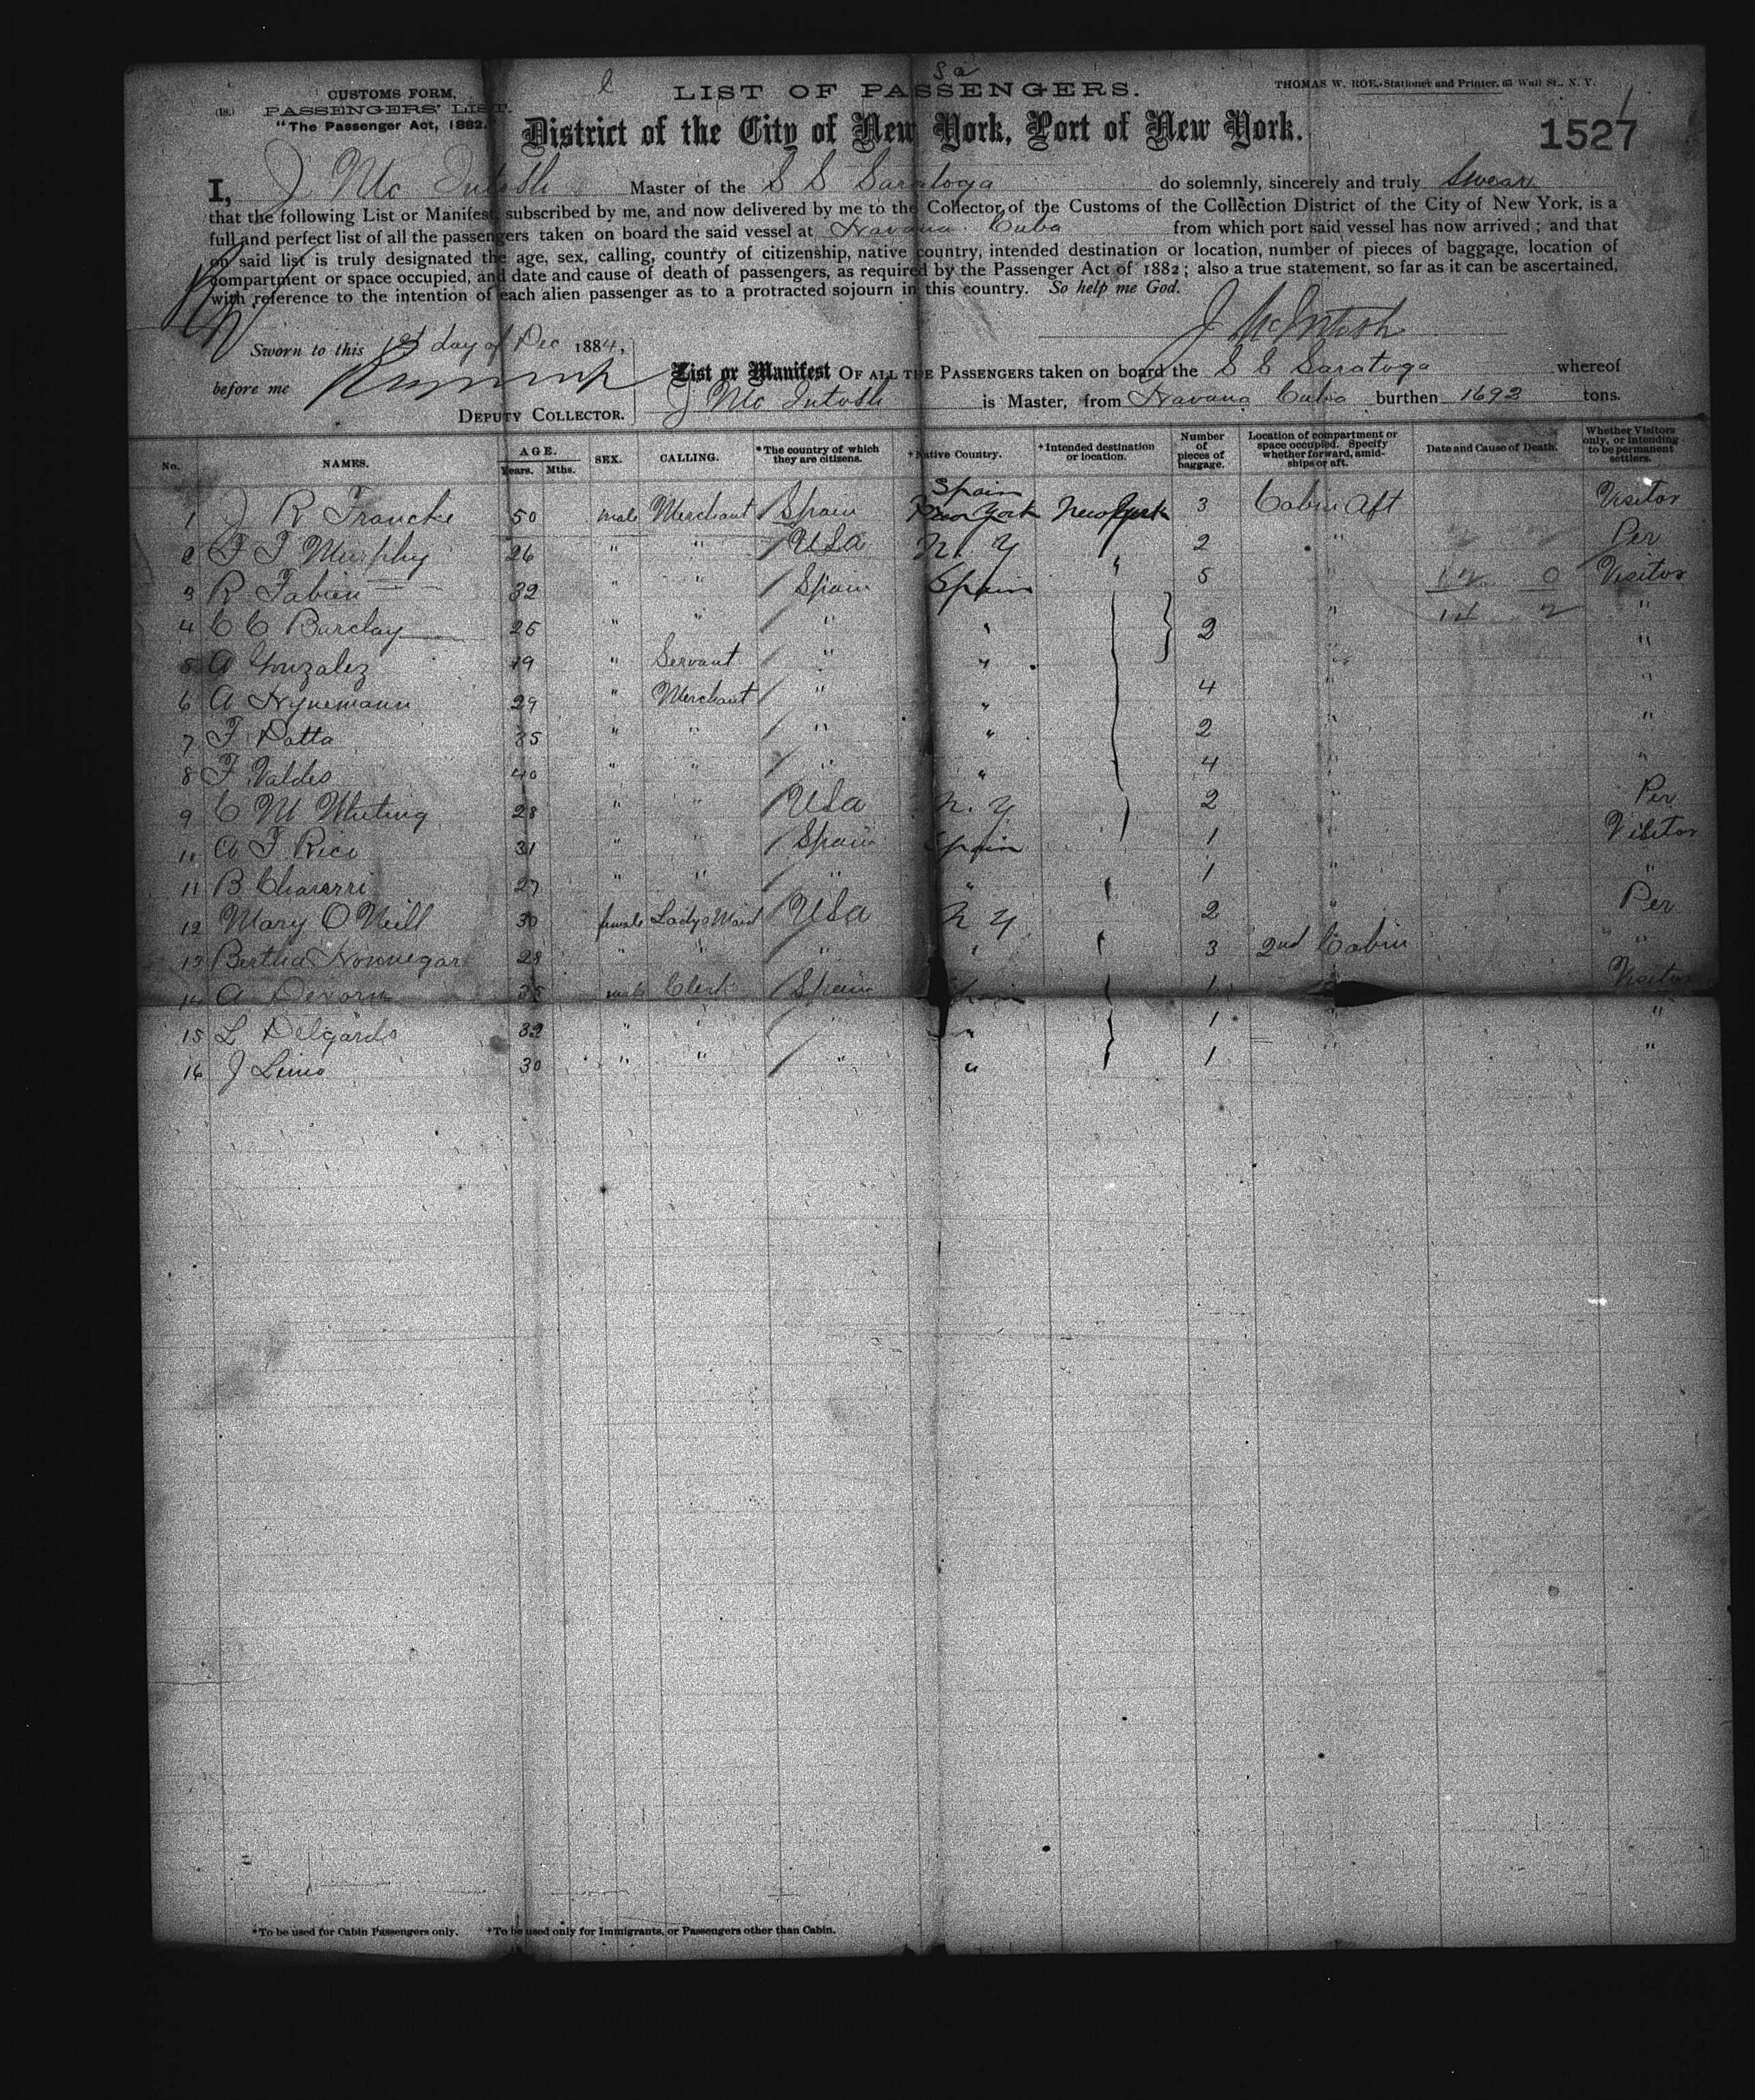 Sa
CUSTOMS FORM.
(1s.) PASSENGERS' LIST.
"The Passenger Act, 1882."
LIST OF PASSENGERS.
THOMAS W. ROE, Stationer and Printer, 63 Wall St., N. Y.
District of the City of New York, Port of New York.
1527
I, J Mc Intosh Master of the S S Saratoga do solemnly, sincerely and truly Swear
that the following List or Manifest, subscribed by me, and now delivered by me to the Collector of the Customs of the Collection District of the City of New York, is a
full and perfect list of all the passengers taken on board the said vessel at Havana Cuba from which port said vessel has now arrived; and that
on said list is truly designated the age, sex, calling, country of citizenship, native country, intended destination or location, number of pieces of baggage, location of
compartment or space occupied, and date and cause of death of passengers, as required by the Passenger Act of 1882; also a true statement, so far as it can be ascertained,
with reference to the intention of each alien passenger as to a protracted sojourn in this country. So help me God.
J McIntosh
Sworn to this 1st day of Dec 1884,
before me
DEPUTY COLLECTOR.
List or Manifest OF ALL THE PASSENGERS taken on board the S S Saratoga whereof
J Mc Intosh is Master, from Havana Cuba burthen 1692 tons.
No. NAMES. AGE. Years. Mths. SEX. CALLING. *The country of which they are citizens. †Native Country. †Intended destination or location. Number of pieces of baggage. Location of compartment or space occupied. Specify whether forward, amidships or aft. Date and Cause of Death. Whether Visitors only, or intending to be permanent settlers.
Spain
1 J R Francke 50 male Merchant Spain New York New York 3 Cabin Aft Visitor
2 F J Murphy 26 " " USA N. Y " 2 " Per
3 R Fabien 32 " " Spain Spain 5 " 12 0 Visitor
4 C C Barclay 25 " " " " 2 " 14 2 "
5 A Gonzalez 19 " Servant " " " "
6 A Hynemann 29 " Merchant " " 4 " "
7 F Patta 35 " " " " 2 " "
8 F Valdes 40 " " " " 4 " "
9 C M Whiting 28 " " USA N. Y 2 " Per
10 A F Rico 31 " " Spain Spain 1 " Visitor
11 B Chaverri 27 " " " " " 1 " "
12 Mary O Neill 30 female Ladys Maid USA N Y 2 " Per
13 Bertha Nonnegar 28 " " " " " 3 2nd Cabin "
14 A 35 male Clerk Spain Spain 1 " Visitor
15 L Delgardo 32 " " " " 1 " "
16 J Lima 30 " " " " 1 " "
*To be used for Cabin Passengers only. †To be used only for Immigrants, or Passengers other than Cabin.